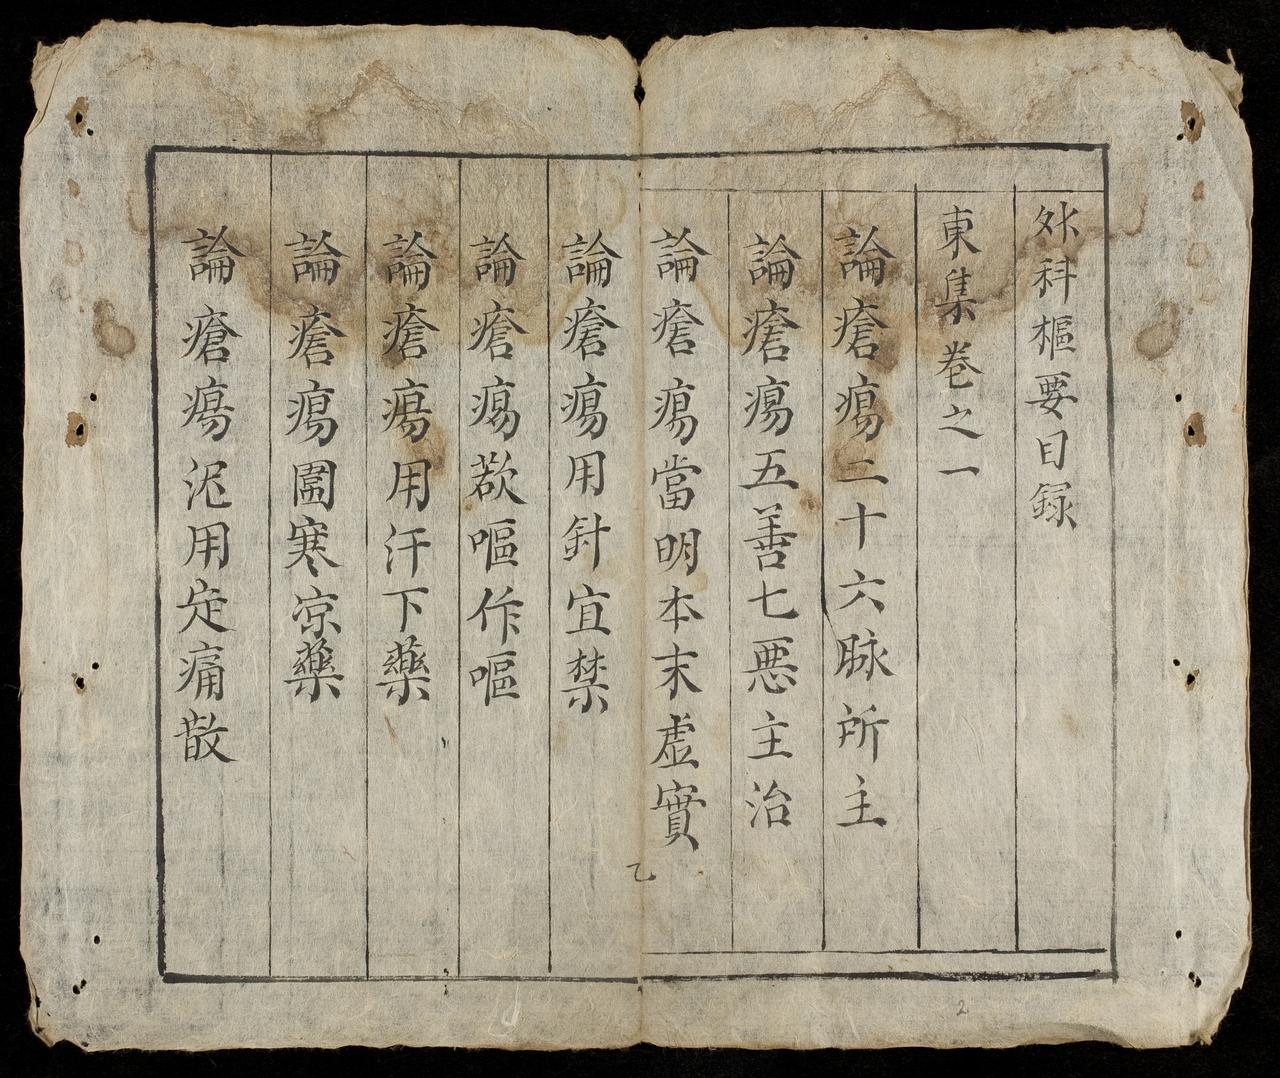 外科樞要目録
東集卷之一
論瘡瘍二十六脉所主
論瘡瘍五善七惡主治
論瘡瘍當明本末虛實
乙
論瘡瘍用針宜禁
論瘡瘍欲嘔作嘔
論瘡瘍用汗下藥
論瘡瘍圍寒凉藥
論瘡瘍泥用定痛散
2